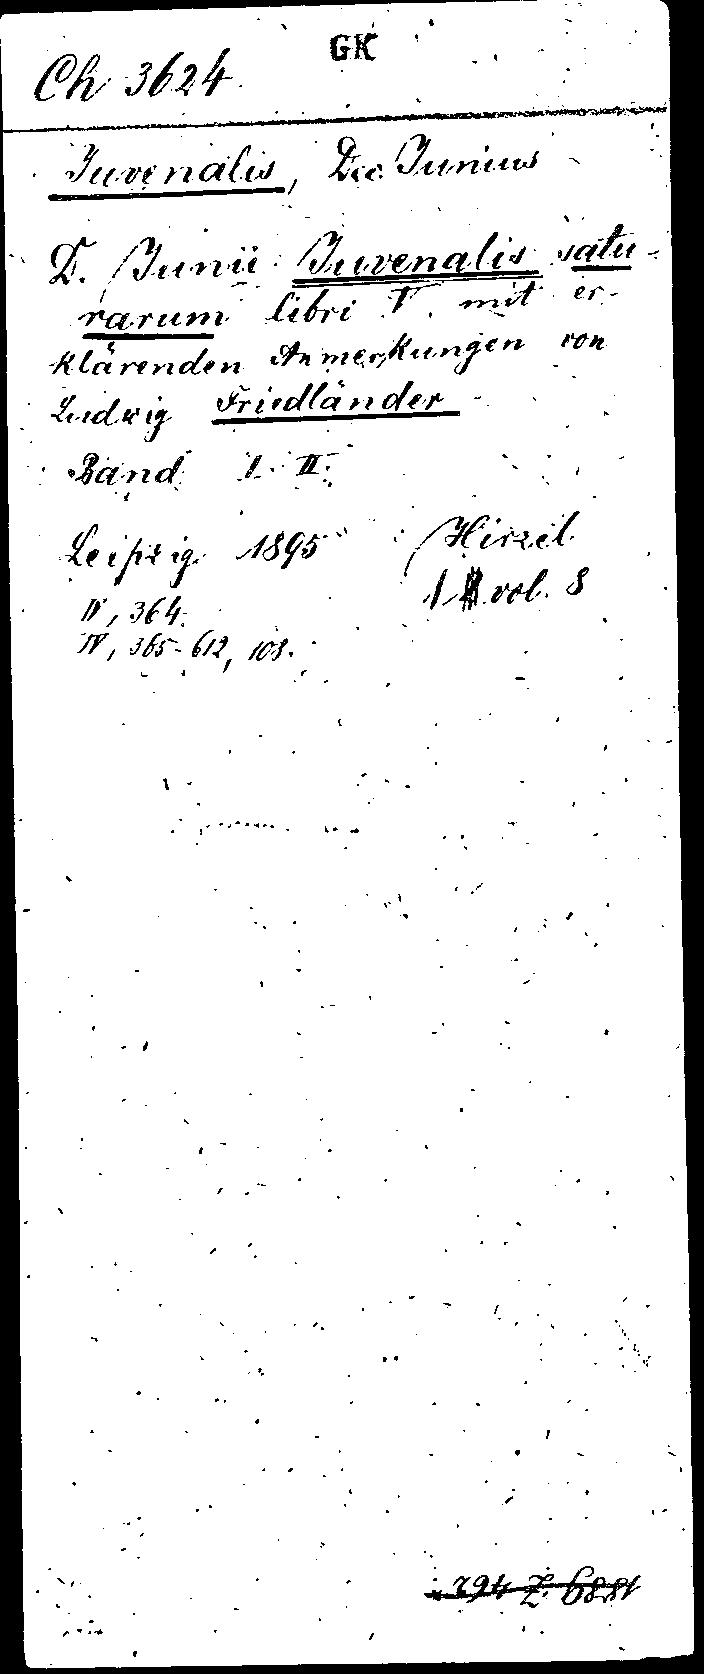 GK
Ch 3624
Juvenalis, Dec. Junius
D. Junii Juvenalis satu-
rarum libri V. mit er-
klärenden Anmerkungen von
Ludwig Friedländer
Band I. II.
Leipzig 1895 Hirzel
1 vol. 8
IV, 364.
IV, 365-612, 108.
1889 Z. 462